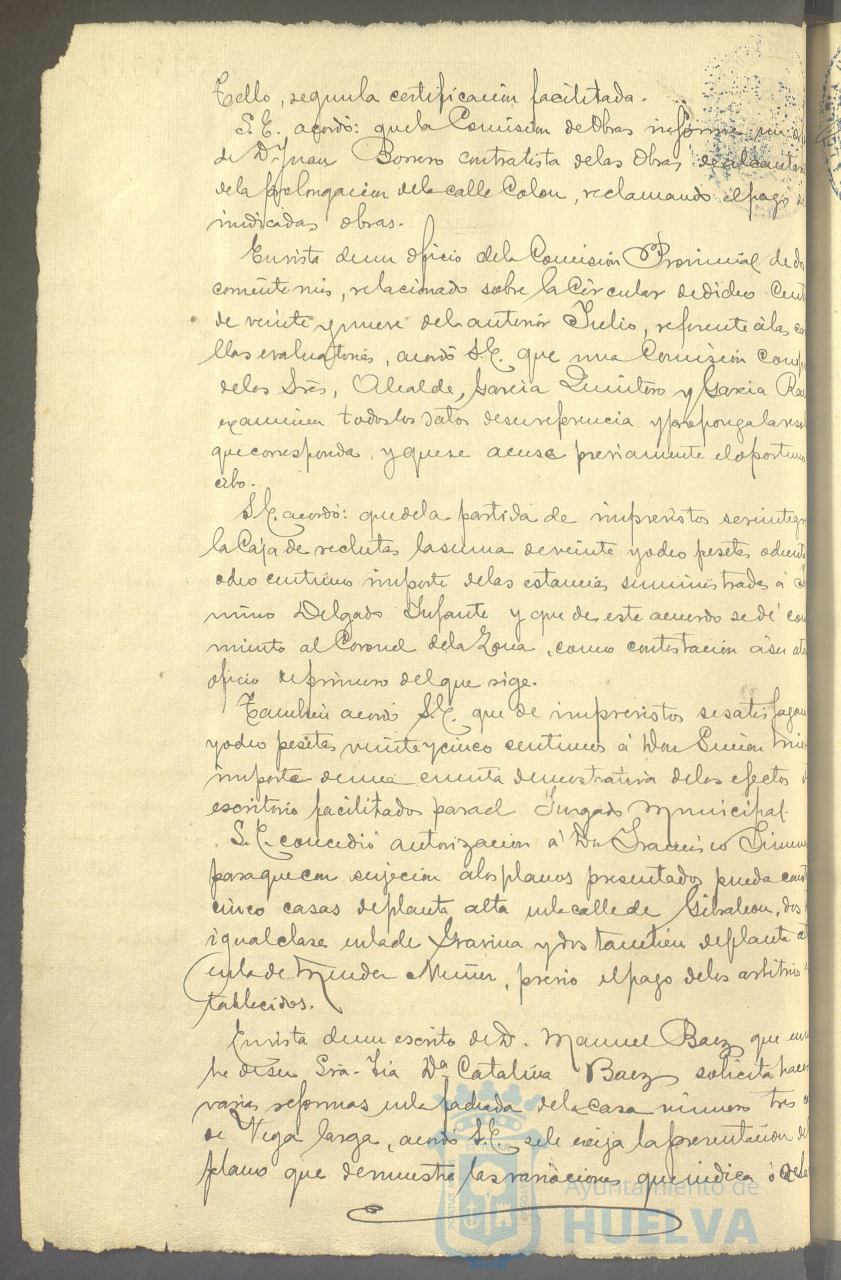 Tello, segun la certificacion facilitada.
S. E. acordó: que la Comision de Obras informe un
de Dn Juan Borrero contratista de las Obras de alcantar
de la prolongacion de la calle Colon, reclamando el pago
indicadas obras.
En vista de un oficio de la Comision Provincial de do
corriente mes, relacionado sobre la Circular de
de veinte y nueve del anterior Julio, referente á las
llas evaluatorias, acordó S. E. que una Comision comp
de los Sres, Alcalde, Garcia Quintero y Garcia Ra
examinen todos los datos de su referencia y proponga la
que corresponda, y que se acuse previamente el oportuno
cibo.
S. E. acordó: que de la partida de imprevistos se reintegr
la Caja de reclutas la suma de veinte y ocho pesetas ochenta
ocho centimos importe de las estancias suministradas á
Delgado Infante y que de este acuerdo se dé con
miento al Coronel de la Zona, como contestacion á su at
oficio de primero del que rige.
Tambien acordó S. E. que de imprevistos se satisfagan
y ocho pesetas veinte y cinco sentimos á Don
importe de una cuenta demostrativa de los efectos
escritorio facilitados para el Jurgado Municipal.
S. E. concedió autorizacion á Dn Francisco Jimen
para que con sujecion a los planos presentados pueda const
cinco casas de planta alta en la calle de Gibraleon, dos
igual clase en la de Gravina y dos tambien de planta al
en la de Mendez Nuñez, previo el pago de los arbitrios
tablecidos.
En vista de un escrito de D. Manuel Baez que en
be de su Sra. Tia Da Catalina Baez solicita hacer
varias reformas en la fachada de la casa numero tres
de Vega larga, acordó S. E. se le exija la presentacion de
plano que demuestre las variaciones que indica ó
Ayuntamiento de
HUELVA